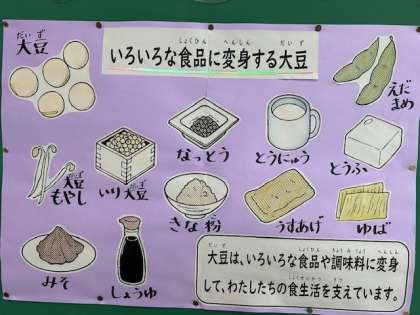 だいず
大豆
しょくひん へんしん だいず
いろいろな食品に変身する大豆
えだ
まめ
なっとう
とうにゅう
とうふ
だいず
大豆
もやし
だいず
いり大豆
きな粉
うすあげ
ゆば
みそ
しょうゆ
だいず しょくひん ちょうみりょう へんしん
大豆は、いろいろな食品や調味料に変身
しょくせいかつ ささ
して、わたしたちの食生活を支えています。